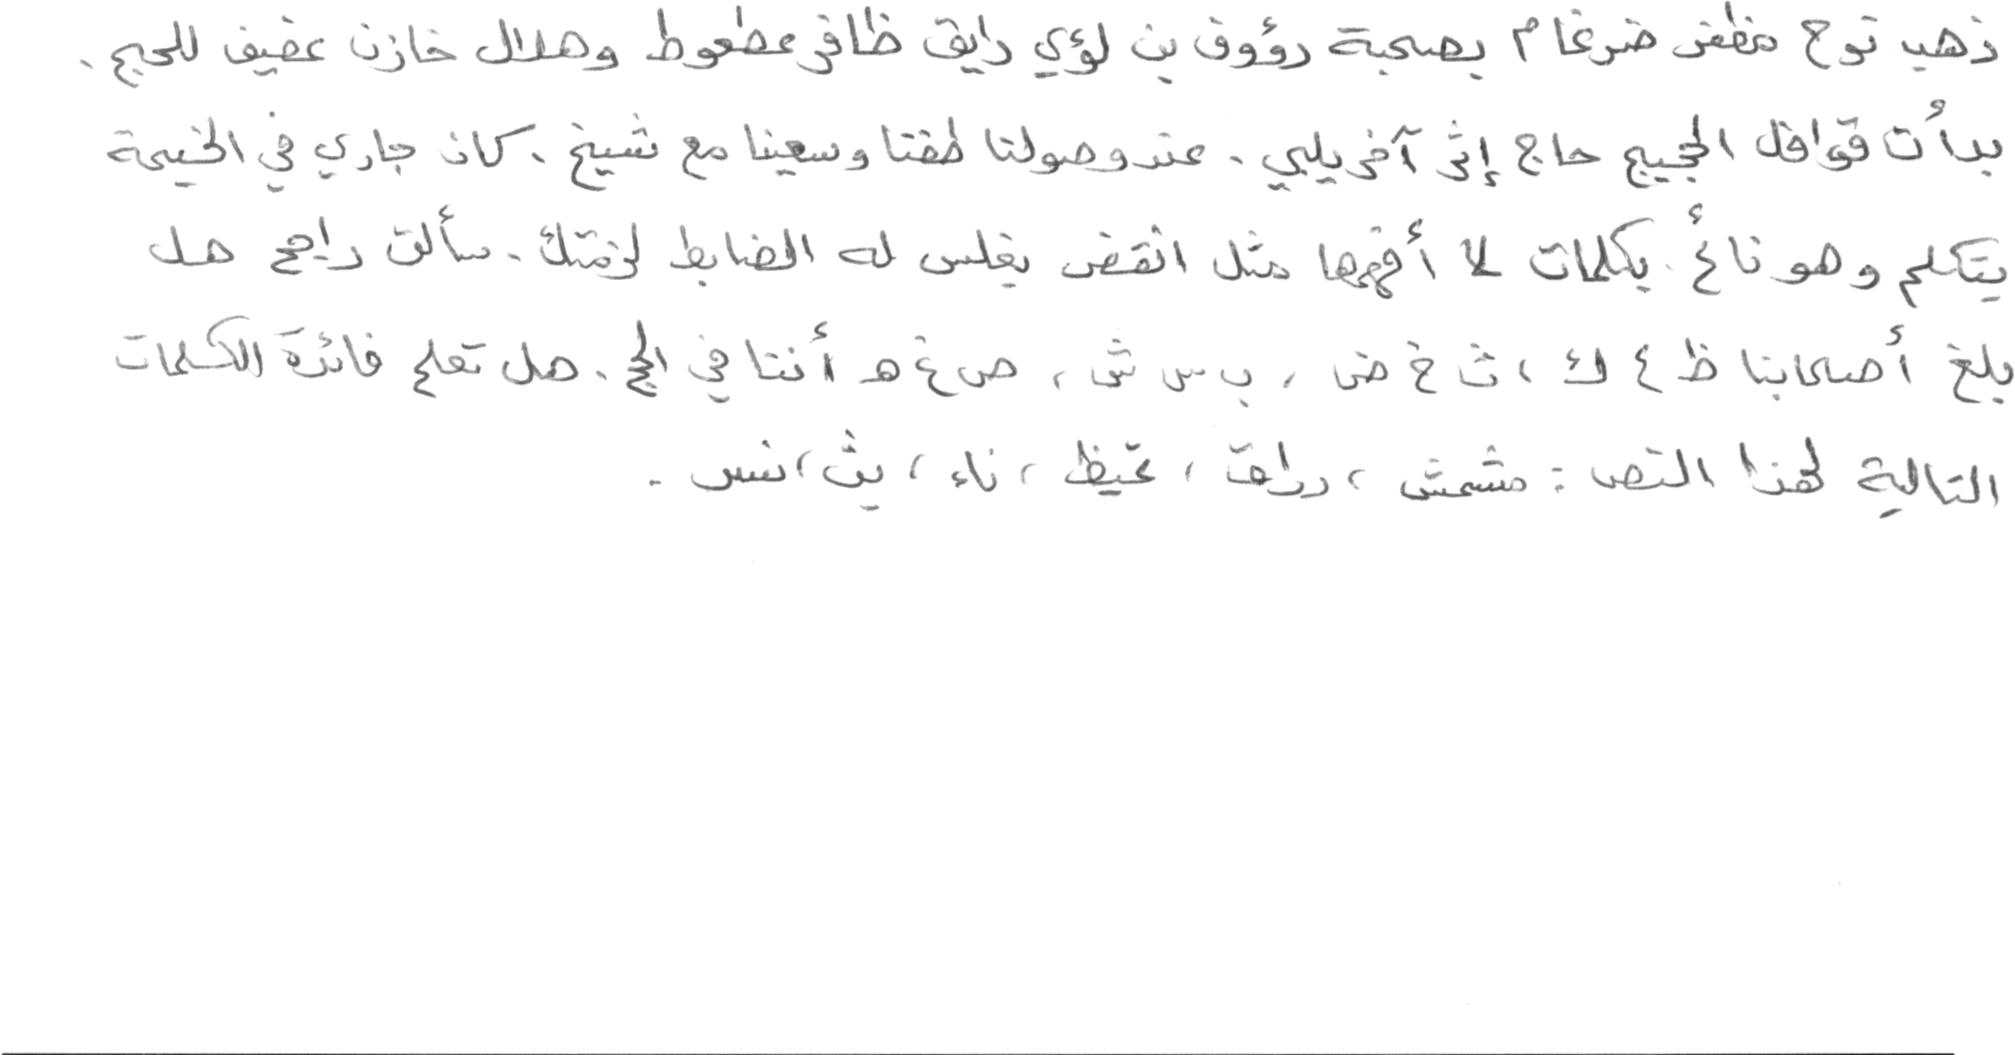 ذهب نوح مظفر ضرغام بصحبة رؤوف بن لؤي رايق ظافر عطعوط وهلال خازن عفيف للحج .
بدأت قوافل الحجيج حاج إثر آخر يلبي . عند وصولنا طفنا وسعينا مع شيخ . كان جاري في الخيمة
يتكلم وهو نائم بكلمات لا أفهمها مثل انقض يغلس له الضابط لزمتك . سألت راجح هل
بلغ أصحابنا ظ ع ك ، ث خ ض ، ب س ش ، ص غ هـ أننا في الحج . هل تعلم فائدة الكلمات
التالية لهذا النص : مشمش ، دراق ، تحيظ ، ناء ، يث ، نس .